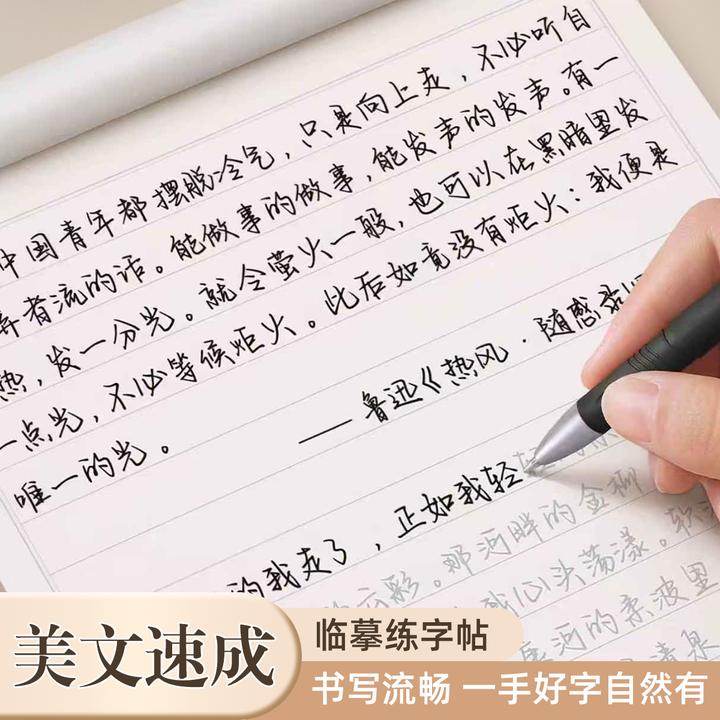 中国青年都摆脱冷气，只是向上走，不必听自
弃者流的话。能做事的做事，能发声的发声。有一
热，发一分光。就令萤火一般，也可以在黑暗里发
一点光，不必等候炬火。此后如竟没有炬火：我便是
唯一的光。
——鲁迅《热风·随感录
的我走了，正如我轻
云彩。那河畔的金柳
我心头荡漾。软
河的柔波里
美文速成
临摹练字帖
书写流畅 一手好字自然有